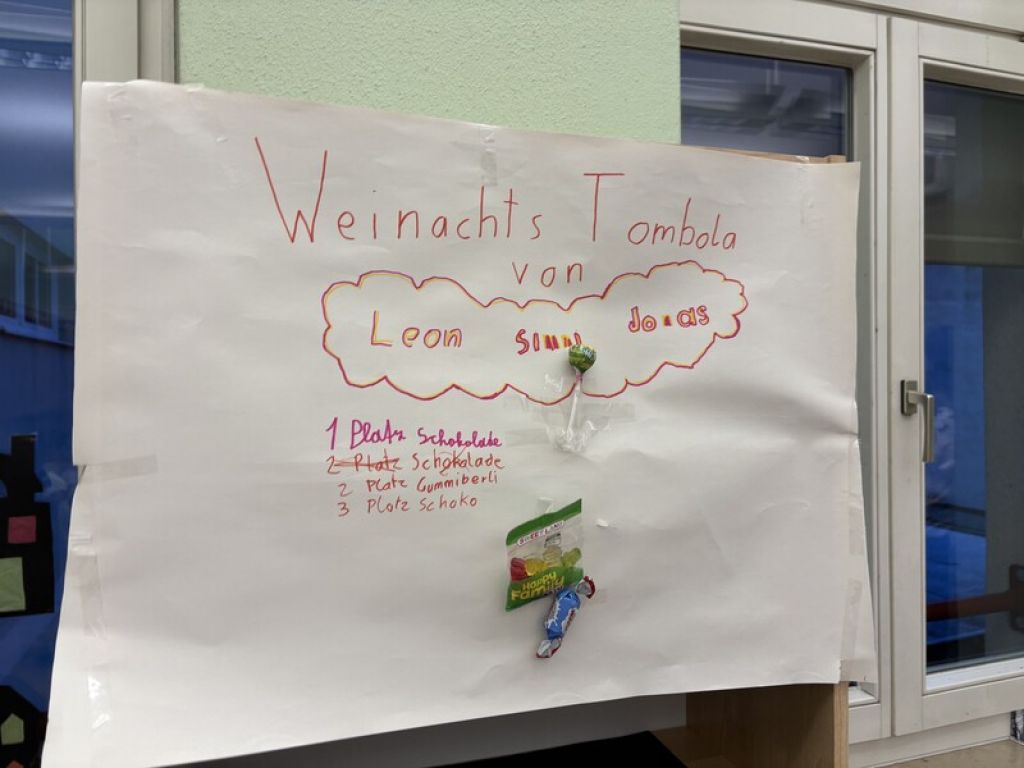 Weinachts Tombola
von
Leon Jonas
1 Platz Schokolade
2 Platz Schokolade
2 Platz Gummiberli
3 Platz Schoko
Happy
Family